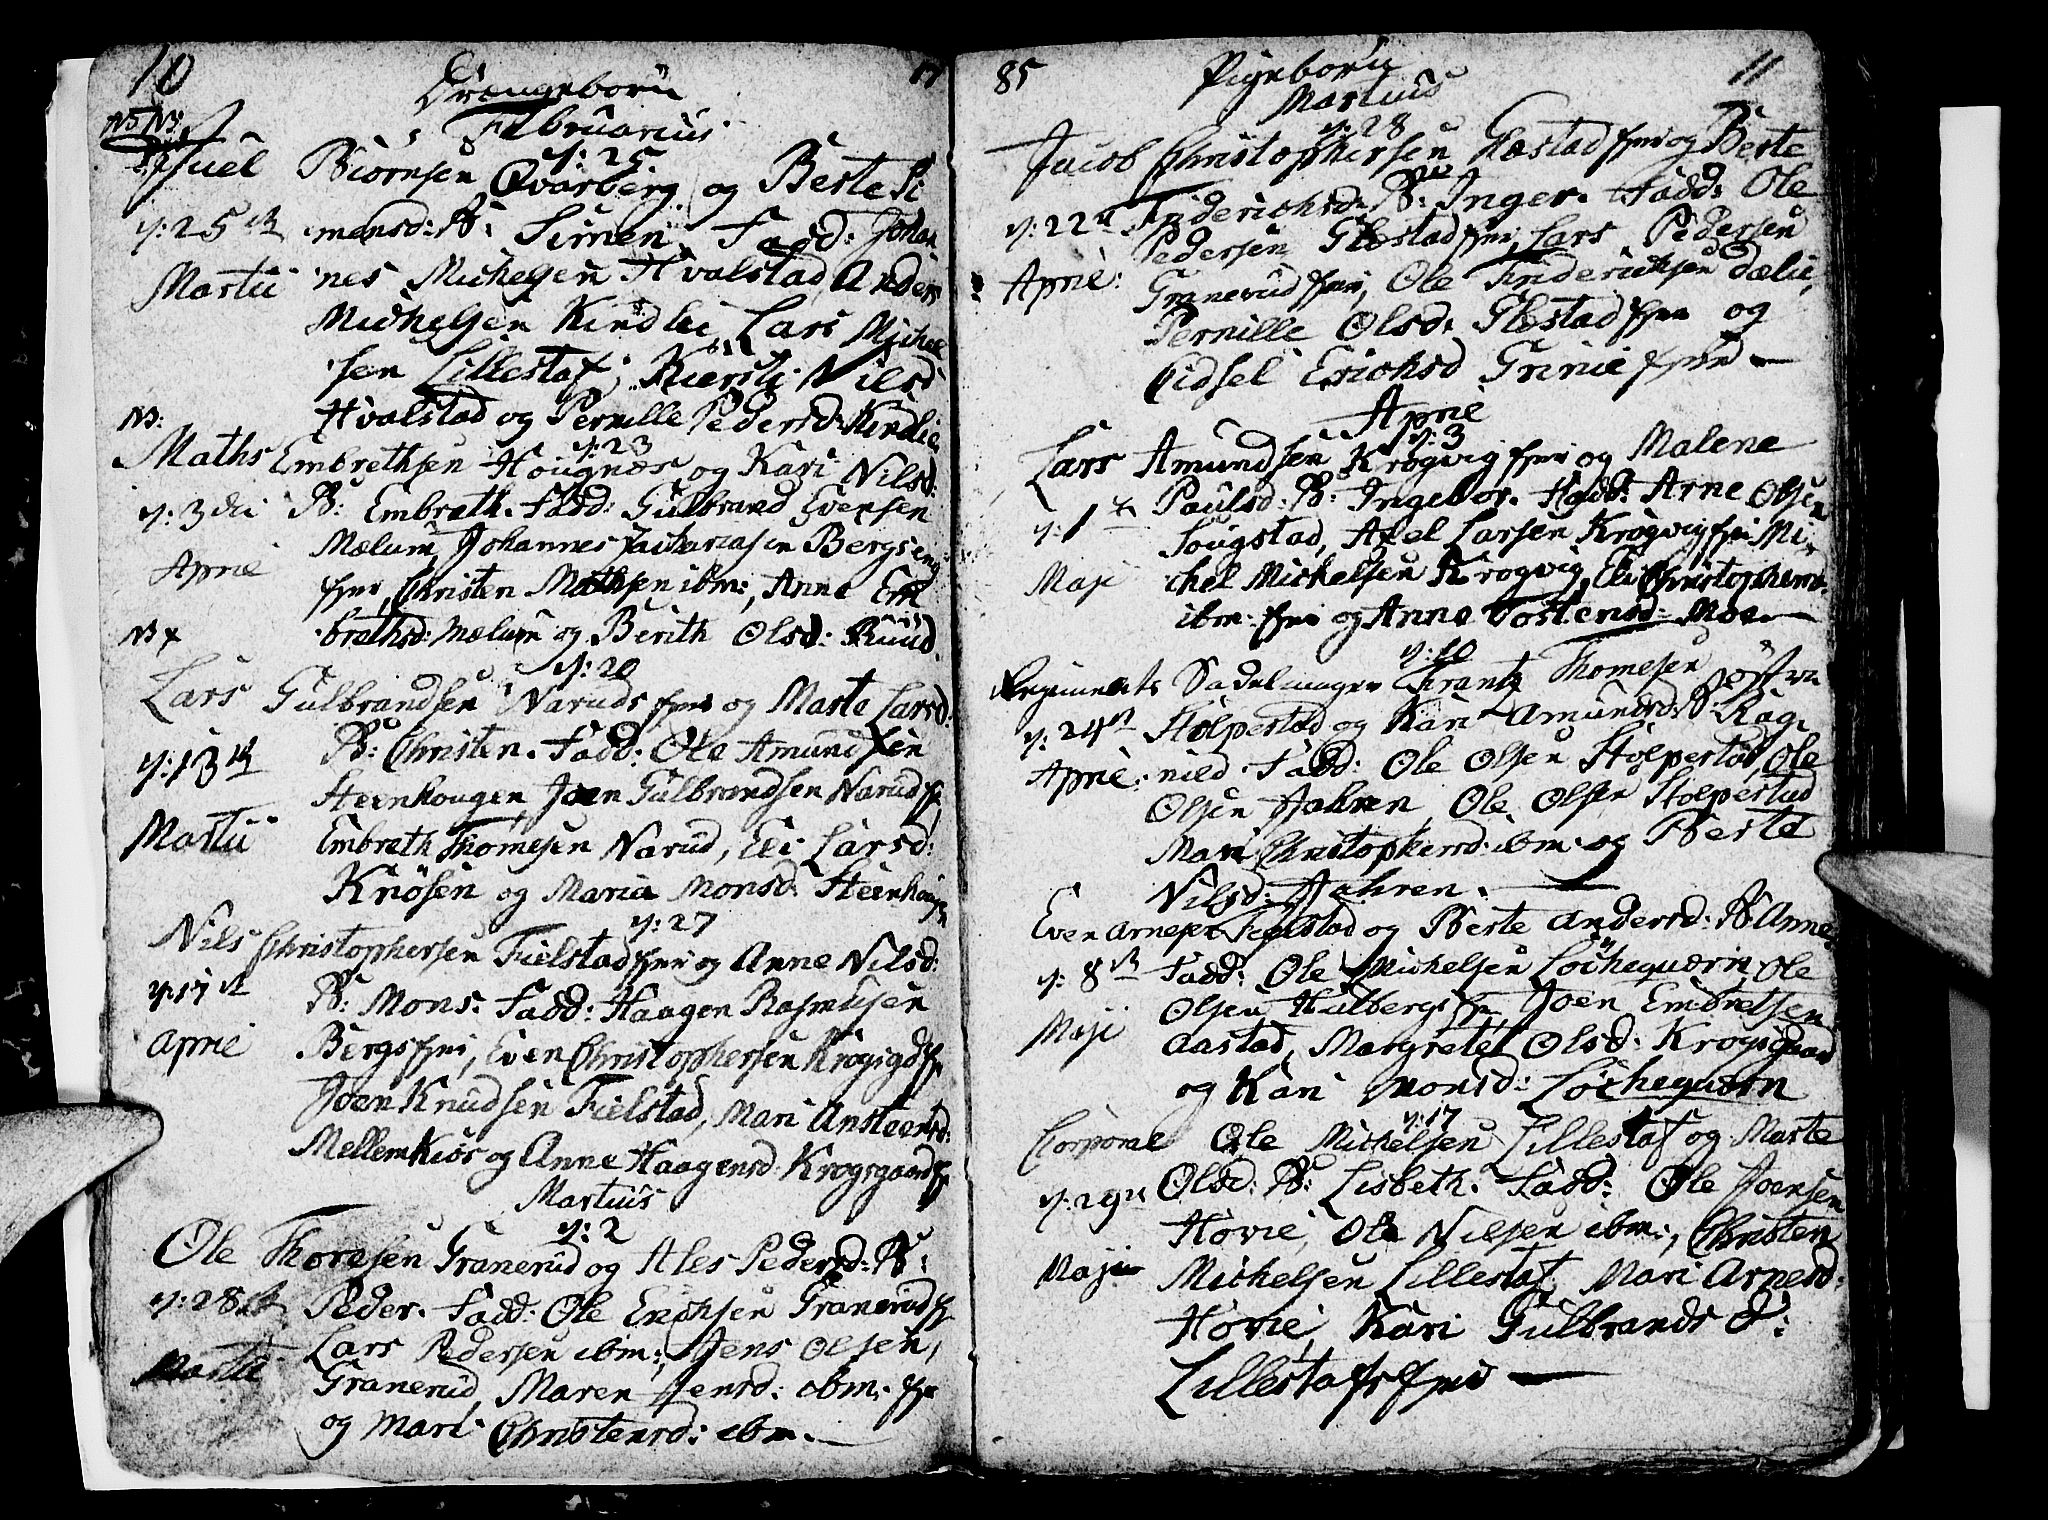 10
17
Drengebörn
Februarius
Biörnsen Qvarberg og Berte Si
y: 25
y: 25
mensd: B: Simen. Fadd: Johan
Martii
nes Michelsen Hvalstad, Anders
Michelsen Kindlie, Lars Michel
sen Lillestaf, Kiersti Nilsd
NB:
Hvalstad og Pernille Pedersd: Kindlie
y: 23
Maths Embrethsen Hougnæs og Kari Nilsd:
y: 3die
B: Embreth. Fadd: Gulbrand Evensen
Mælum, Johannes Zachariasen Bergs
April
Christen Mathsen ibm:, Anne Em
NB
brethsd: Mælum og Berith Olsd: Ruud.
y: 20
Lars Gulbrandsen Naruds og Marte Larsd:
y: 13
B: Christen. Fadd: Ole Amundsen
Steenhougen, Joen Gulbrandsen Narud
Martii
Embreth Thomesen Narud, Eli Larsd:
Knösen og Maria Monsd: Steenhougen
y: 27
Nils Christophersen Fielstad og Anne Nilsd:
y: 17
B: Mons. Fadd: Haagen Rasmusen
April
Bergs, Even Christophersen
Joen Knudsen Fielstad, Mari Ansteensd:
Mellemkiös og Anne Haagensd: Krogsgaard
Martius
y: 2
Ole Thoresen Granerud og Ales Pedersd: B:
y: 28
Peder. Fadd: Ole Erichsen Granerud
Lars Pedersen ibm:, Jens Olsen,
Martii
Granerud, Maren Jensd: ibm.
og Mari Christensd: ibm.
85
Pigebörn
11
Martius
y: 28
Jacob Christophersen og Berte
Friderichsd: B: Inger. Fadd: Ole
y: 22
Pedersen, Lars Pedersen
April:
Granerud, Ole Friderichsen Dælie,
Pernille Olsd: og
Eidsel Erichsd Grinie
April
y: 3
Lars Amundsen Krogvig og Malene
Paulsd: B: Ingebor. Fadd: Arne Olsen
y: 1
Sougstad, Axel Larsen Krogvig Mi
Maji
chel Michelsen Krogvig, Eli Christophersd:
ibm: og Anne Tostensd: Moe
y: 10
Regiments Sadelmager Frantz Thomesen
y: 24
Stolpestad og Kari Amundsd: B: Rag
April:
nild. Fadd: Ole Olsen Stolpestad, Ole
Olsen Jahren, Ole Olsen Stolpestad
Mari Christophersd: ibm: og Berte
Nilsd: Jahren.
Even Arnesen og Berte Andersd: B: Anne
y: 8
Fadd: Ole Michelsen Löcheqværn, Ole
Olsen Hulbergs, Joen Embretsen
Maji
Aastad, Margrete Olsd: Krogsgaard
og Kari Monsd: Löcheqværn
y: 17
Corporal Ole Michelsen Lillestaf og Marte
Olsd: B: Lisbeth. Fadd: Ole Joensen
y: 29
Hovie, Ole Nilsen ibm:, Christen
Maji
Michelsen Lillestaf, Mari Arnesd:
Hovie, Kari Gulbrandsd:
Lillestafs